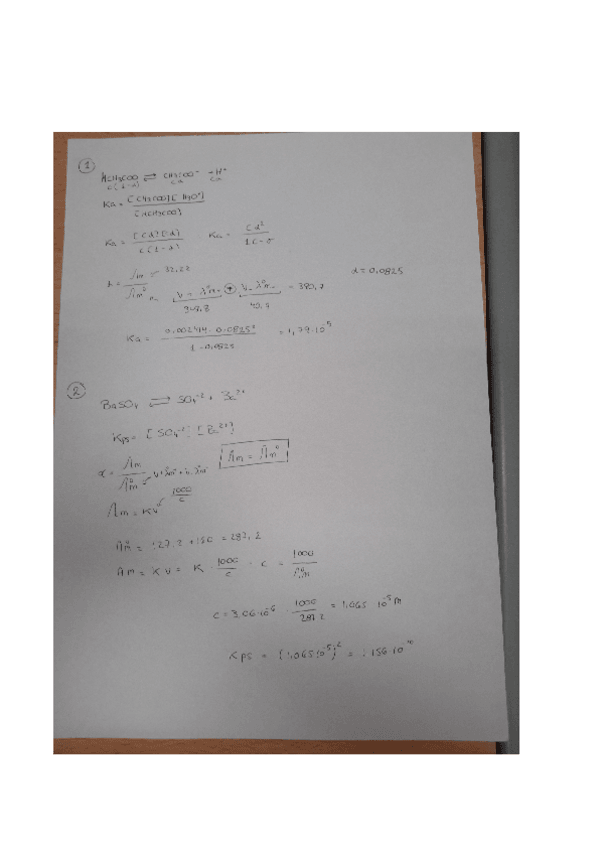 1
HCH3COO ⇌ CH3COO⁻ + H⁺
C(1-α) Cα Cα
Ka = [CH3COO⁻][H3O⁺] / [HCH3COO]
Ka = [Cα][Cα] / C(1-α) Ka = Cα² / 1-α
α = Λm / Λm° 32,22
ν+ λ°m+ + ν- λ°m- = 390,7 α = 0,0825
349,8 40,9
Ka = 0.002414 · 0.0825² / 1-0.0825 = 1,79·10⁻⁵
2
BaSO4 ⇌ SO4⁻² + Ba²⁺
Kps = [SO4⁻²][Ba²⁺]
α = Λm / Λm° Λm = Λm°
Λm = KV 1000/c
Λm° = 127.2 + 160 = 287,2
Λm = KV = K · 1000/c · c = 1000/Λm
c = 3.06·10⁻⁶ · 1000/287.2 = 1.065 10⁻⁵ M
Kps = (1.065·10⁻⁵)² =